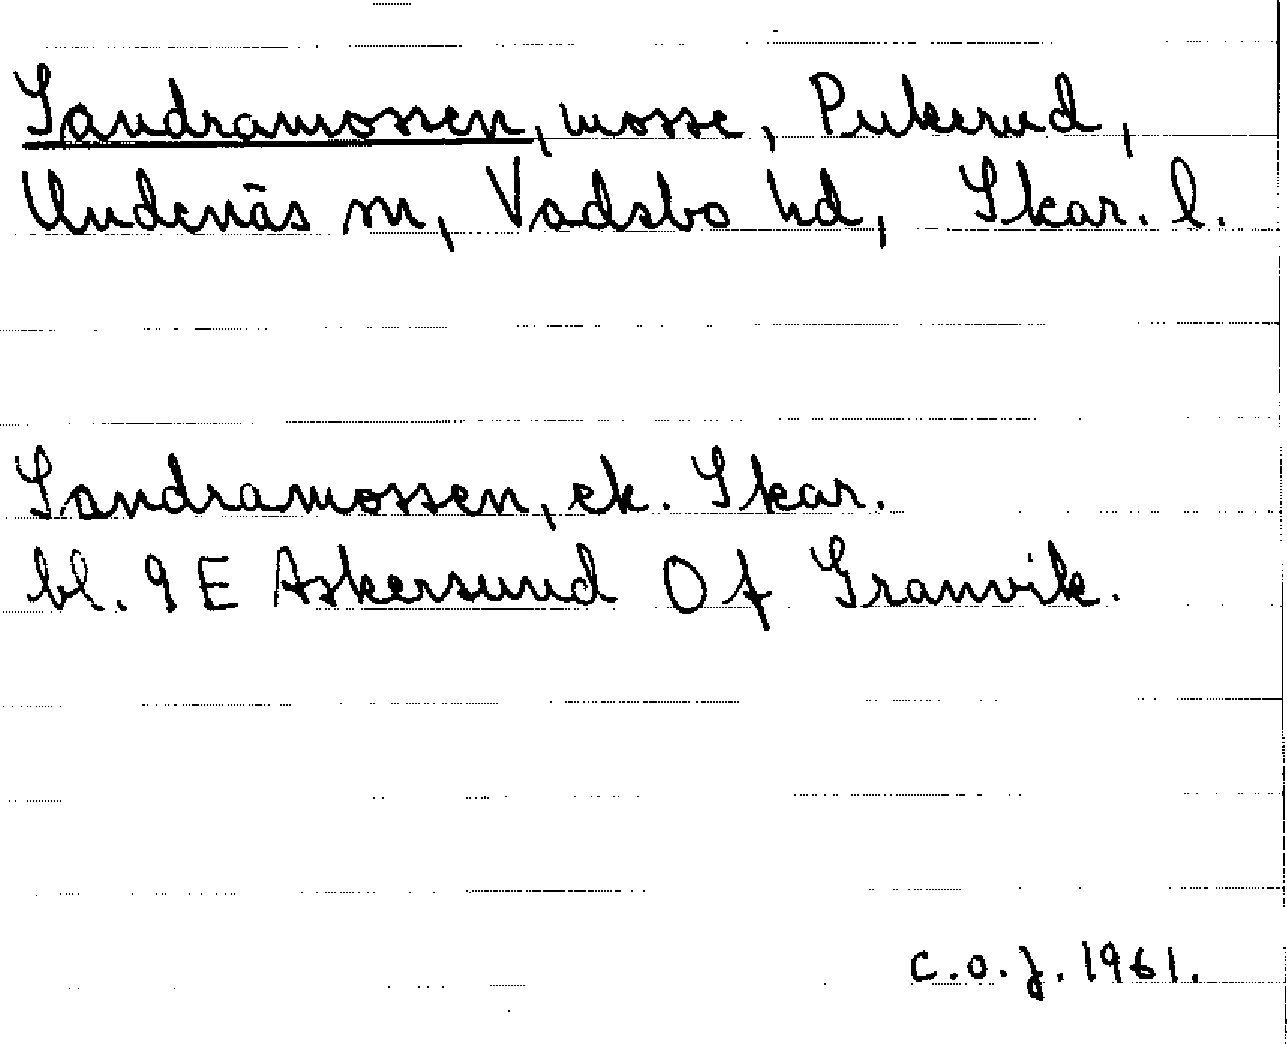 Sandramossen, mosse, Pukerud,
Undenäs sn, Vadsbo hd, Skar. l.
Sandramossen, ek. Skar.
bl. 9 E Askersund 0 f Granvik.
C.O.J. 1961.